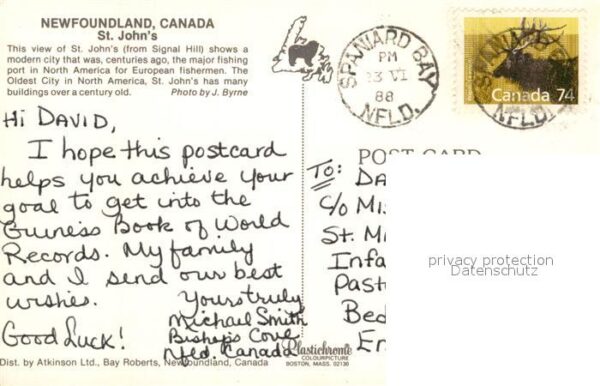 NEWFOUNDLAND, CANADA
St. John's
This view of St. John's (from Signal Hill) shows a
modern city that was, centuries ago, the major fishing
port in North America for European fishermen. The
Oldest City in North America, St. John's has many
buildings over a century old. Photo by J. Byrne
SPANIARD BAY
PM
23 VI
88
NFLD.
SPANIARD BAY
NFLD.
Canada 74
Hi DAVID,
I hope this postcard
helps you achieve your
goal to get into the
Guiness Book of World
Records. My family
and I send our best
wishes.
Yours truly,
Michael Smith
Bishop's Cove
Nfld. Canada
Good Luck!
POST CARD
To: DA
c/o Mis
St. Mi
Infa
Past
Bed
En
privacy protection
Datenschutz
Plastichrome
COLOURPICTURE
BOSTON, MASS. 02130
Dist. by Atkinson Ltd., Bay Roberts, Newfoundland, Canada